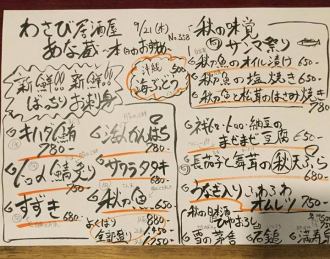 わさび居酒屋
あな蔵 本日のおすすめ
9/21(木)
No.358
新鮮!! 新鮮!!
ばっちりお刺身
沖縄
海ぶどう 500
キハダ鮪 780
活〆かんぱち 780-
トロ〆鯖炙り 750-
サワラタタキ 680-
すずき 680-
秋刀魚 680-
よくばり
全部盛り
880-
1,450-
1,750-
秋の味覚
サンマ祭り
秋刀魚のオイル漬け 650-
秋刀魚の塩焼き 650-
秋刀魚と松茸のはさみ焼き 780-
納豆の
まぜまぜ豆腐 650-
長茄子と舞茸の秋天ぷら 680-
うなぎ入りふわふわ
オムレツ 750-
秋の日本酒
ひやおろし
雪の茅舎
石鎚
満寿泉